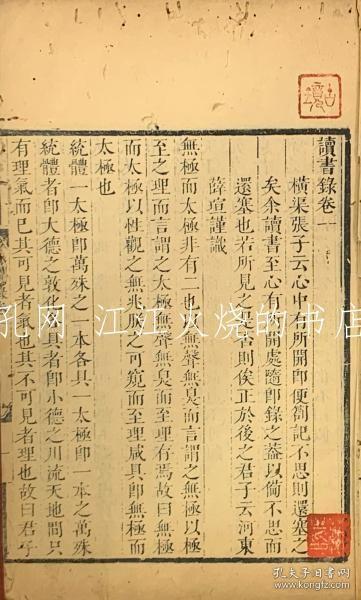 讀書錄卷一
橫渠張子云心中有所開即便劄記不思則還塞之
矣余讀書至心有所開處隨即錄之蓋以備不思而
還塞也若所見之是否則俟正於後之君子云河東
薛瑄謹識
無極而太極非有二也以無聲無臭而言謂之無極以極
至之理而言謂之太極無聲無臭而至理存焉故曰無極
而太極以性觀之無兆朕之可窺而至理咸具即無極而
太極也
統體一太極即萬殊之一本各具一太極即一本之萬殊
統體者即大德之敦化各具者即小德之川流天地間只
有理氣而已其可見者氣也其不可見者理也故曰君子
孔网 江江火烧的书店
孔夫子旧书网